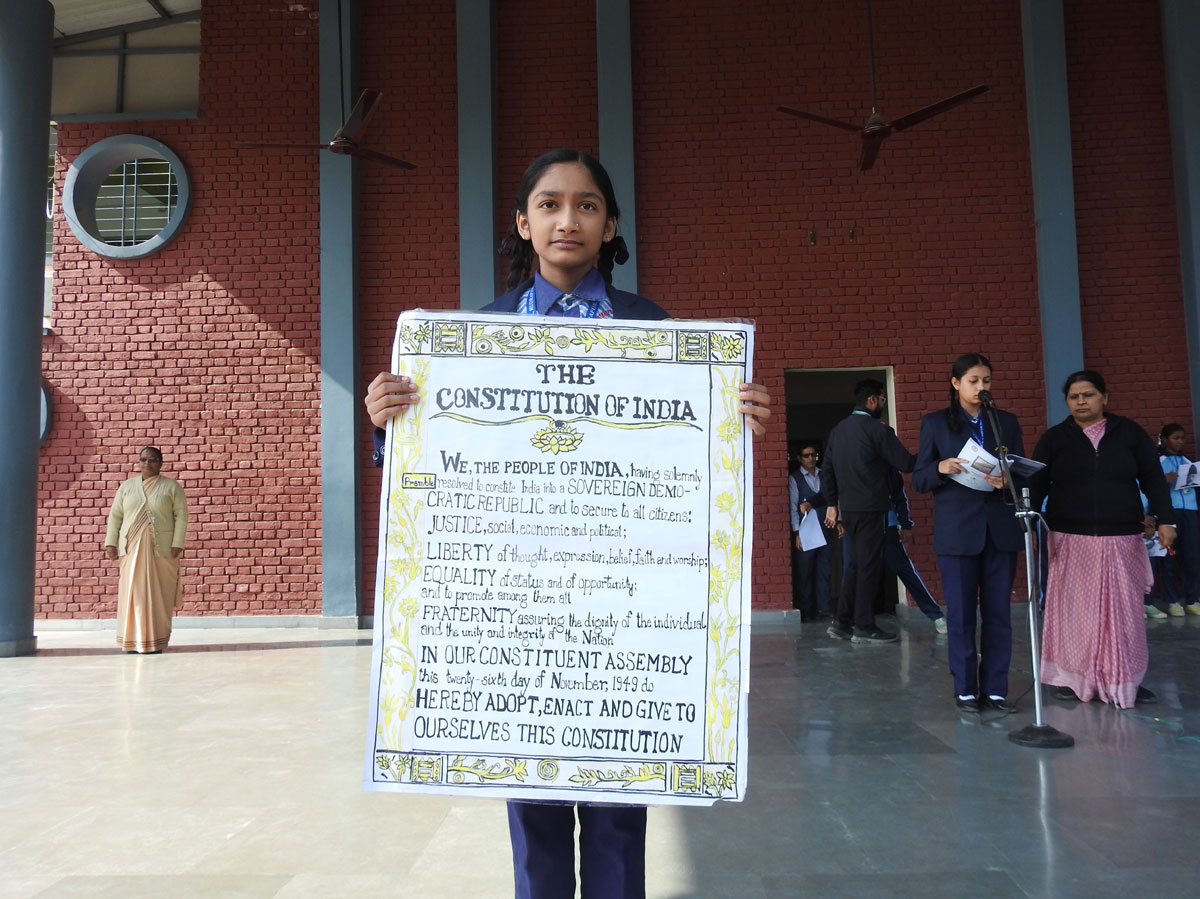 THE
CONSTITUTION OF INDIA
WE, THE PEOPLE OF INDIA, having solemnly
Preamble
resolved to constite India into a SOVEREIGN DEMO-
CRATIC REPUBLIC and to secure to all citizens:
JUSTICE, social, economic and political;
LIBERTY of thought, expression, belief, faith and worship;
EQUALITY of status and of opportunity;
and to promote among them all
FRATERNITY assuring the dignity of the individual
and the unity and integrity of the Nation
IN OUR CONSTITUENT ASSEMBLY
this twenty-sixth day of November, 1949 do
HEREBY ADOPT, ENACT AND GIVE TO
OURSELVES THIS CONSTITUTION